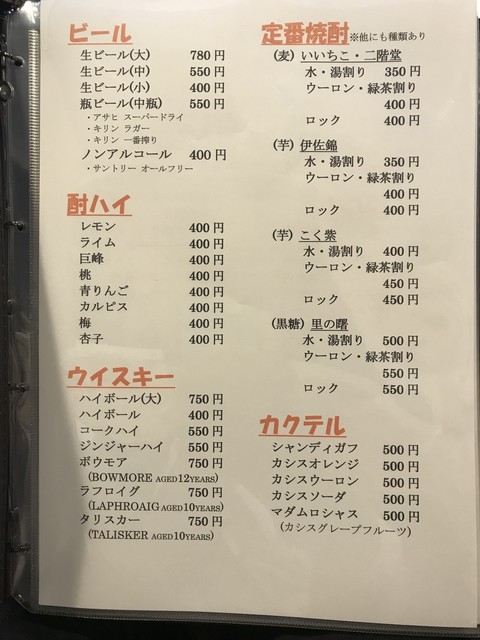 ビール
生ビール(大) 780円
生ビール(中) 550円
生ビール(小) 400円
瓶ビール(中瓶) 550円
・アサヒ スーパードライ
・キリン ラガー
・キリン 一番搾り
ノンアルコール 400円
・サントリー オールフリー
酎ハイ
レモン 400円
ライム 400円
巨峰 400円
桃 400円
青りんご 400円
カルピス 400円
梅 400円
杏子 400円
ウイスキー
ハイボール(大) 750円
ハイボール 400円
コークハイ 550円
ジンジャーハイ 550円
ボウモア 750円
(BOWMORE AGED12YEARS)
ラフロイグ 750円
(LAPHROAIG AGED10YEARS)
タリスカー 750円
(TALISKER AGED10YEARS)
定番焼酎 ※他にも種類あり
(麦) いいちこ・二階堂
水・湯割り 350円
ウーロン・緑茶割り
400円
ロック 400円
(芋) 伊佐錦
水・湯割り 350円
ウーロン・緑茶割り
400円
ロック 400円
(芋) こく紫
水・湯割り 400円
ウーロン・緑茶割り
450円
ロック 450円
(黒糖) 里の曙
水・湯割り 500円
ウーロン・緑茶割り
550円
ロック 550円
カクテル
シャンディガフ 500円
カシスオレンジ 500円
カシスウーロン 500円
カシスソーダ 500円
マダムロシャス 500円
(カシスグレープフルーツ)